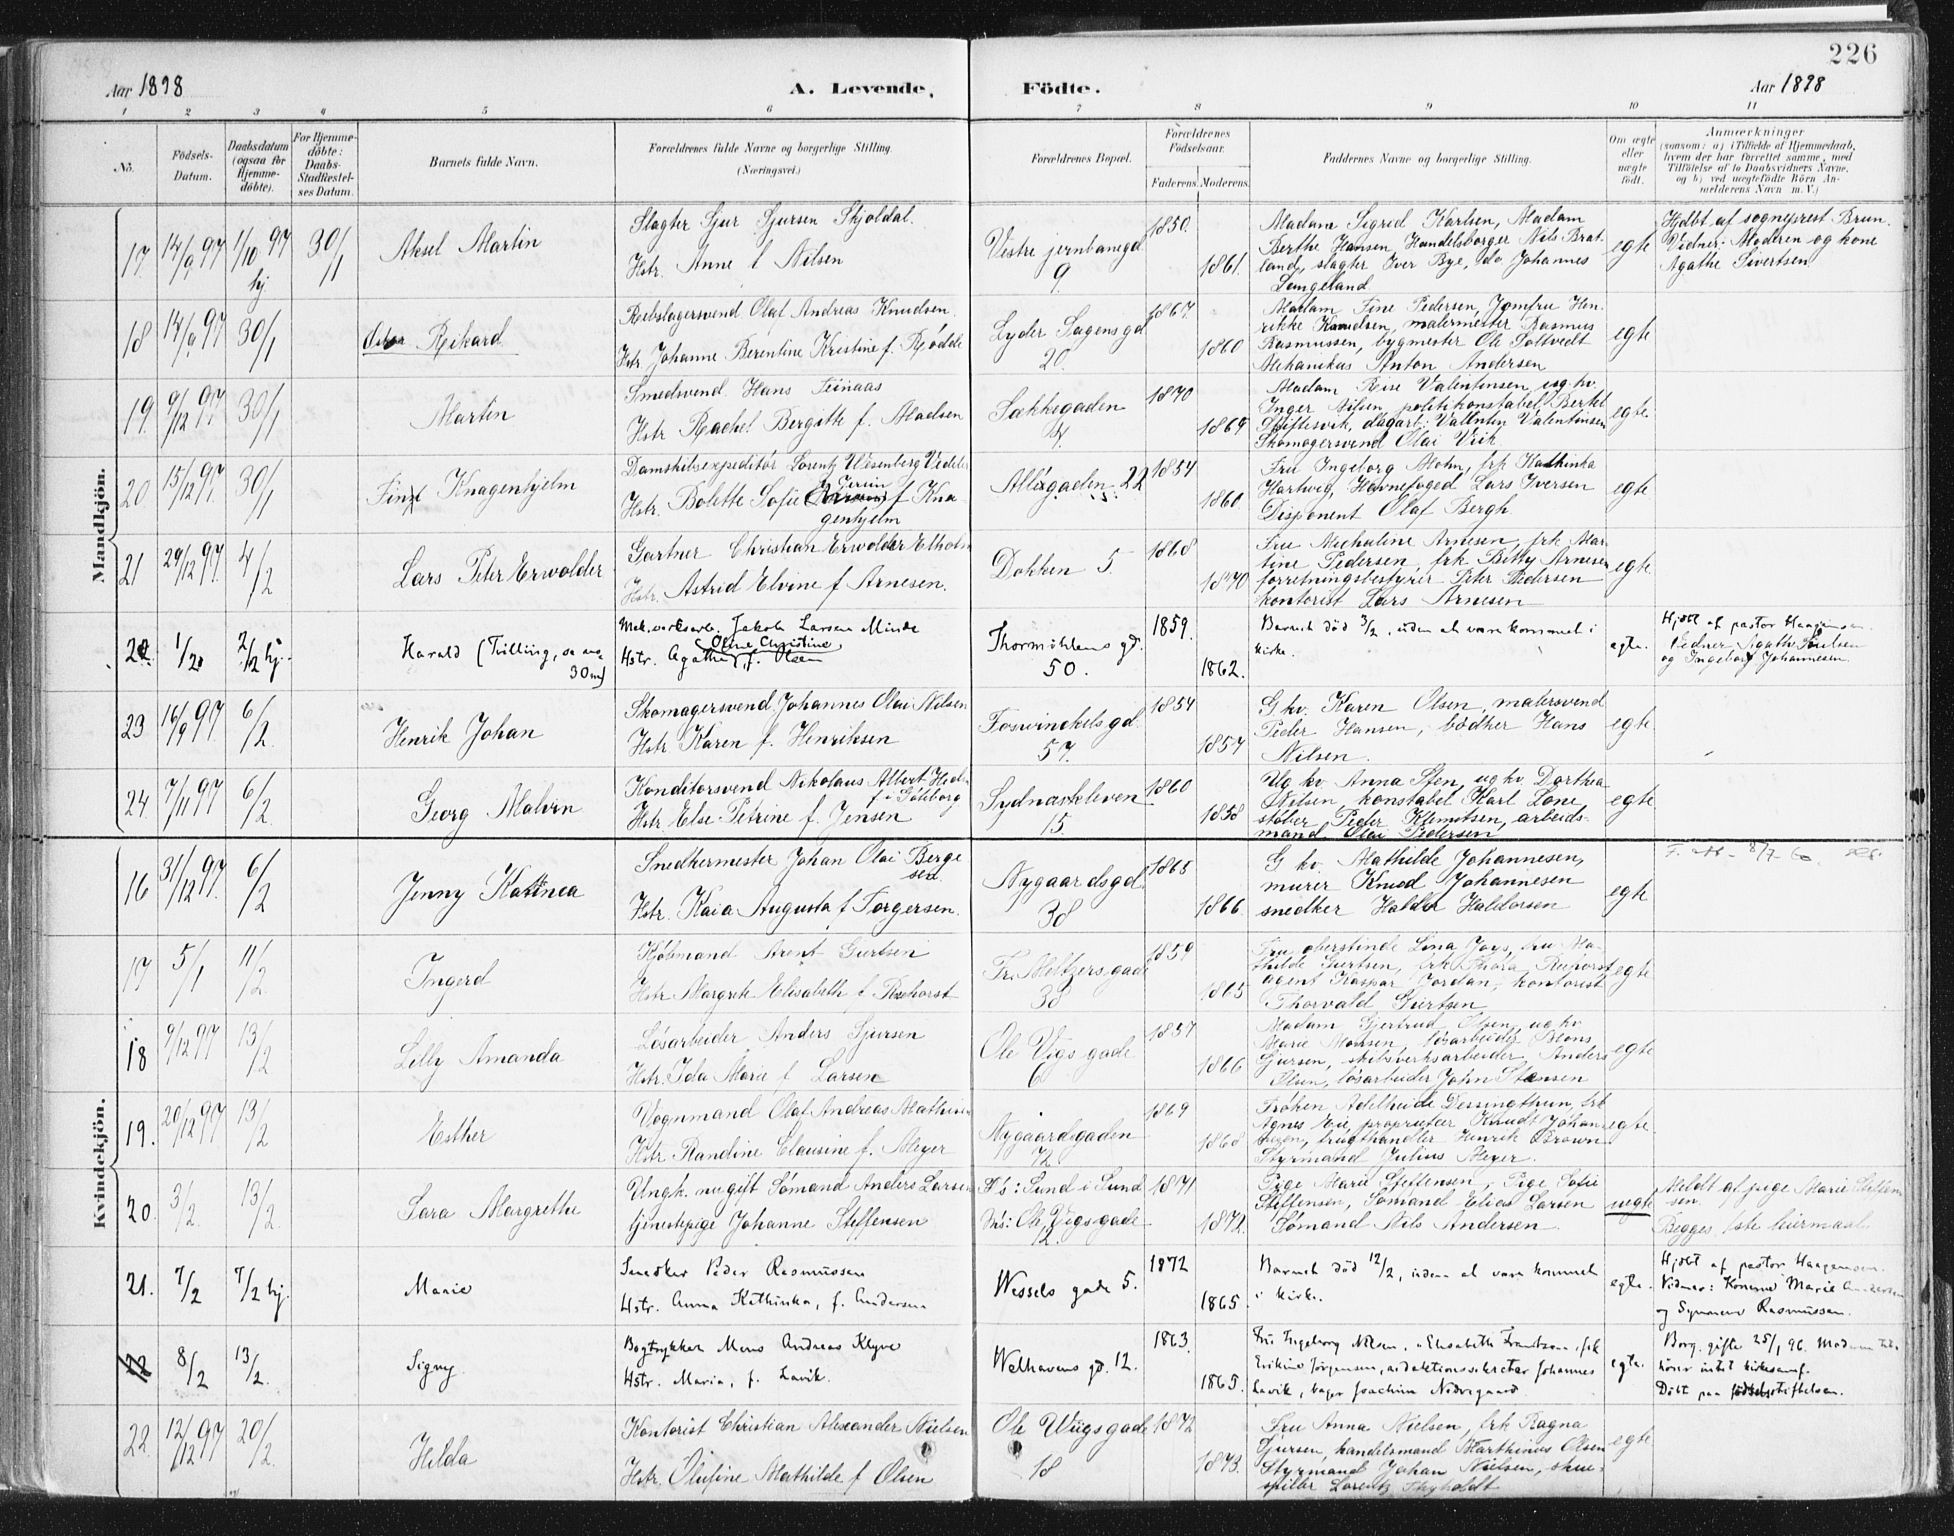 226
Aar 1898 A. Levende. Födte. Aar 1898
1 2 3 4 5 6 7 8 9 10 11
No.
Födsels-Datum.
Daabsdatum (ogsaa for Hjemme-döbte).
For Hjemme-döbte: Daabs-Stadfæstel-ses Datum.
Barnets fulde Navn.
Forældrenes fulde Navne og borgerlige Stilling. (Næringsvei.)
Forældrenes Bopæl.
Forældrenes Födselsaar.
Faderens. Moderens.
Faddernes Navne og borgerlige Stilling.
Om ægte eller uægte födt.
Anmærkninger
(saasom: a) i Tilfælde af Hjemmedaab, hvem der har forrettet samme, med Tilföielse af to Daabsvidners Navne, og b) ved uægtefödte Börn An-melderens Navn m. V.)
Mandkjön.
17 14/9 97 1/10 97 hj 30/1 Aksel Martin
Slagter Sjur Sjursen Skjoldal
Hstr. Anne f Nilsen
Vestre jernbanegd 9. 1850. 1861.
Madam Sigrid Karlsen, Madam
Berthe Hansen, Handelsborger Nils Brat-
land, slagter Iver Bye, do Johannes
Langeland
egte
Hjdbt af sogneprest Brun.
Vidner: Moderen og kone
Agathe Sivertsen
18 14/9 97 30/1 Rikard
Rebslagersvend Olaf Andreas Knudsen
Hstr. Johanne Berentine Kristine f. Rødde
Lyder Sagens gd 20. 1867. 1860
Madam Fine Pedersen, Jomfru Hen-
rikke Knudsen, malermester Rasmus
Rasmussen, bygmester Ole Tottvedt
Mekanikus Anton Andersen
egte
19 9/12 97 30/1 Martin
Smedsvend Hans
Hstr Rachel Bergitte f. Madsen
Sækkegaden 4. 1870 1869
Madam Valentinsen, ug. kv.
Inger Nilsen, politikonstabel Bertel
dagarb: Valentin Valentinsen
Skomagersvend Olai Vik
egte.
20 15/12 97. 30/1 Finn Knagenhjelm
Damskibsexpeditör Lorentz Wesenberg Vedeler
Hstr. Bolette Sofie f Kna
genhjelm
Allégaden 22 1854 1860
Fru Ingeborg Mohn, frk Kathinka
Hartvig, Havnefoged Lars Iversen
Disponent Olaf Bergh
egte
21 29/12 97. 4/2 Lars Peter Erwolder
Gartner Christian Erwolder Elholm
Hstr. Astrid Elvine f Arnesen.
Dokken 5 1868 1870
Fru Michaline Arnesen, frk Mar-
tine Pedersen, frk Betty Arnesen
forretningsbestyrer Peter Pedersen
kontorist Lars Arnesen
egte
22. 1/2 2/2 hj. Harald (Trilling, se
30m)
Mek. verksarb. Jakob Larsen Minde
Oline Christine
Hstr. Agathe, f. Olsen
Thormöhlens gd. 50. 1859. 1862.
Barnet död 3/2, uden at være kommet i
kirke.
egte.
Hjdbt af pastor Haagensen.
Vidner Agathe Paulsen
og Ingeborg Johannesen.
23 16/9 97 6/2. Henrik Johan
Skomagersvend Johannes Olai Nilsen
Hstr Karen f. Henriksen
Fosswinckels gd 57. 1854 1857
G kv. Karen Olsen, malersvend
Peder Hansen, bødker Hans
Nilsen.
egte
24. 7/11 97 6/2. Georg Malvin
Konditorsvend Nikolaus Albert
f i Göteborg
Hstr Else Petrine f. Jensen
Sydnæskleven 15. 1860 1858
Ug kv Anna Sten, ug kv Dorthea
Nilsen, konstabel Karl Lone,
støber Peder Klemetsen, arbeids-
mand Olai Pedersen
egte
Kvindekjön.
16 31/12 97. 6/2 Jenny Katinca
Snedkermester Johan Olai Berge
sen
Hstr. Kaia Augusta f Torgersen.
Nygaardsgd. 38 1865 1866.
G kv. Mathilde Johannesen,
murer Knud Johannesen
snedker Haldor Haldorsen
egte
17 5/1 11/2 Ingerd
Kjöbmand Arent Giertsen
Hstr Margrete Elisabeth f. Rieshorst
Fr. Meltzers gade 38 1859 1865
Fru oberstinde Lina Joys, fru Ma-
thilde Giertsen, frk Thora
agent Kaspar Jordan, kontorist
Thorvald Giertsen
egte
18 9/12 97 13/2 Lilly Amanda
Løsarbeider Anders Sjursen
Hstr. Ida Marie f Larsen
Ole Vigs gade 6 1857 1866
Madam Gjertrud Olsen, ug kv.
Marie Monsen, løsarbeider Mons
Sjursen, skibsverksarbeider Anders
Olsen, løsarbeider John Stensen
egte
19. 20/12 97 13/2 Esther
Vognmand Olaf Andreas Mathisen
Hstr Randine Clausine f. Meyer
Nygaardsgaden 72 1869 1868
Frøken Adelheide Dessingthun, frk
Agnes proprietær Knudt Johan-
frugthandler Henrik Brown
Styrmand Julius Meyer.
egte.
20. 3/2. 13/2. Sara Margrethe
Ungk. nu gift Sømand Anders Larsen
tjenestepige Johanne Steffensen
F's: Sund i Sund
M's: Ole Vigs gade 12. 1871 1872.
Pige Marie Steffensen, Pige Sofie
Steffensen, Sømand Elias Larsen
Sømand Nils Andersen
uegte
Meldt af pige Marie Steffen-
sen.
Begges 1ste leiermaal.
21. 7/2 7/2 hj. Marie
Snedker Peder Rasmussen
Hstr. Anna Kathinka, f. Andersen
Wessels gade 5. 1872 1865.
Barnet död 12/2, uden at være kommet
i kirke.
egte.
Hjdbt af pastor Haagensen.
Vidner: Konerne Marie Andersen
og Synneve Rasmussen.
22 8/2 13/2. Signy
Bogtrykker Mons Andreas Klyve
Hstr. Maria, f. Lavik.
Welhavens gd. 12. 1863. 1865.
Fru Ingeborg Nilsen, Elisabeth Frantzen, frk
Erikine Jørgensen, redaktionssekretær Johannes
Lavik, bager Joachim Nedregaard.
egte.
Borg. gifte 25/1 96. Moderen til-
hörer intet kirkesamf.
Döbt paa fødselsstiftelsen.
22. 12/12 97 20/2. Hilda
Kontorist Christian Alexander Nielsen
Hstr. Olufine Mathilde f Olsen
Ole Wiigs gade 18 1872 1873.
Fru Anna Nielsen, frk Ragna
Sjursen, handelsmand Marthinus Olsen
Styrmand Johan Nielsen, skue-
spiller Lorentz Thyholdt
egte